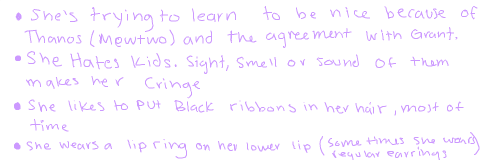 • She's trying to learn to be nice because of
Thanos (Mewtwo) and the agreement with Grant.
• She Hates Kids. Sight, Smell or sound of them
makes her Cringe
• She likes to put Black ribbons in her hair, most of
time
• She wears a lip ring on her lower lip (some times she
regular earrings)